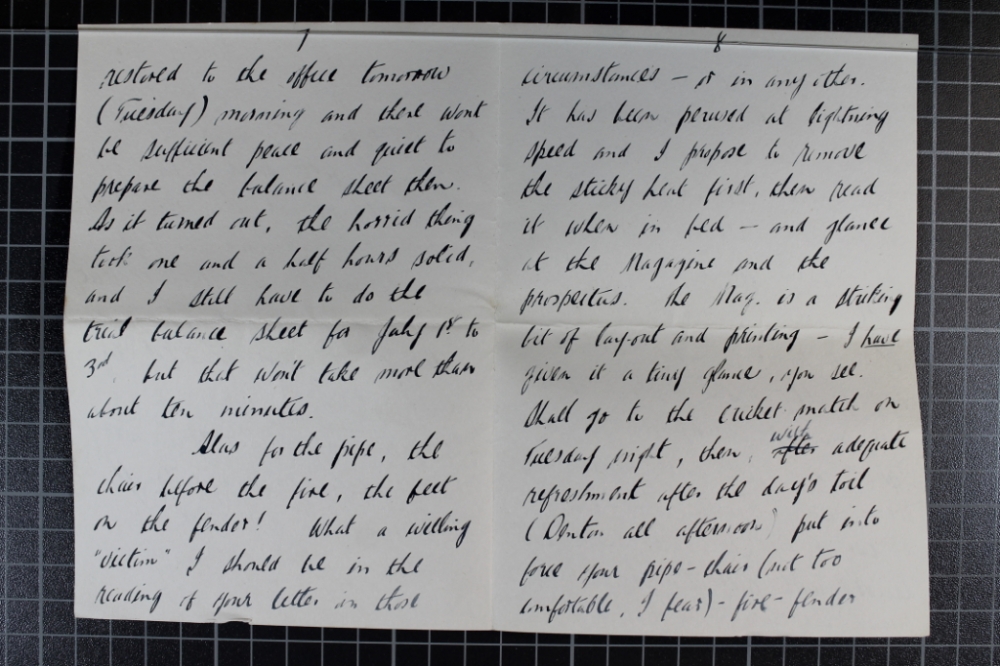 7
restored to the office tomorrow
(Tuesday) morning and there wont
be sufficient peace and quiet to
prepare the balance sheet then.
As it turned out, the horrid thing
took one and a half hours solid,
and I still have to do the
trial balance sheet for July 1st to
3rd, but that won't take more than
about ten minutes.
Alas for the pipe, the
chair before the fire, the feet
on the fender! What a willing
"victim" I should be in the
reading of your letter in those
8
circumstances – or in any other.
It has been perused at lightning
speed and I propose to remove
the sticky heat first, then read
it when in bed – and glance
at the Magazine and the
prospectus. The Mag. is a striking
bit of lay-out and printing – I have
given it a tiny glance, you see.
Shall go to the cricket match on
Tuesday night, then, with after adequate
refreshment after the day's toil
(Denton all afternoon) put into
force your pipe-chair (not too
comfortable, I fear) - fire - fender